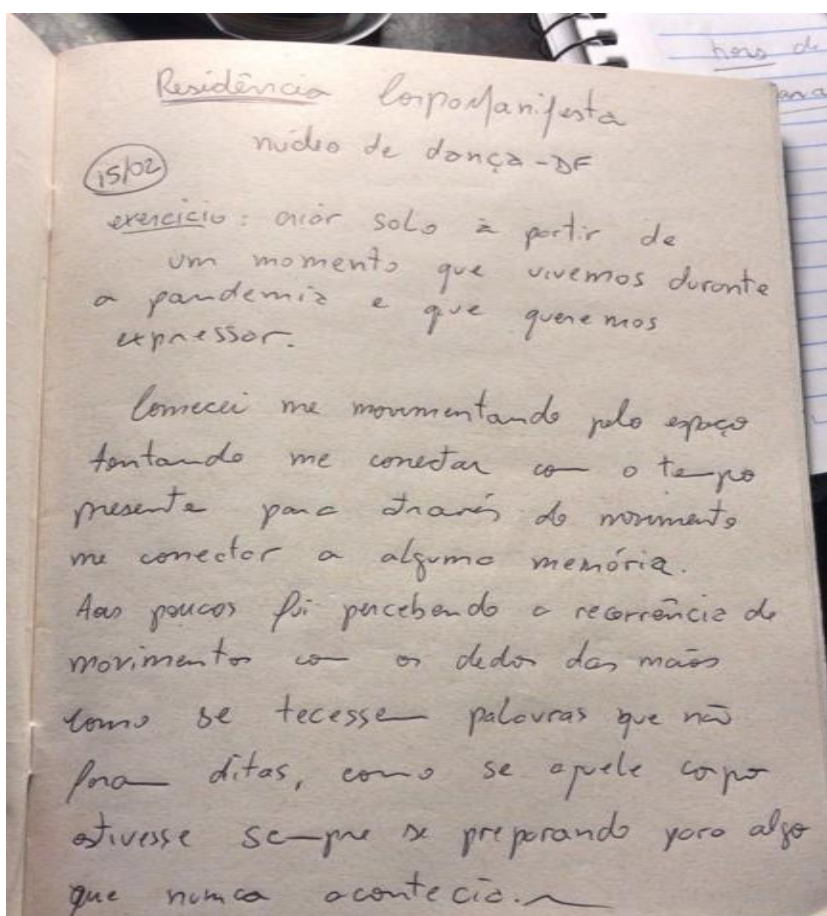 Residência CorpoManifesta
núcleo de dança - DF
15/02
exercício: criar solo à partir de
um momento que vivemos durante
a pandemia e que queremos
expressar.
Comecei me movimentando pelo espaço
tentando me conectar com o tempo
presente para através do movimento
me conectar a alguma memória.
Aos poucos fui percebendo a recorrência de
movimentos com os dedos das mãos
como se tecessem palavras que não
foram ditas, como se aquele corpo
estivesse sempre se preparando para algo
que nunca acontecia.
hora de
para